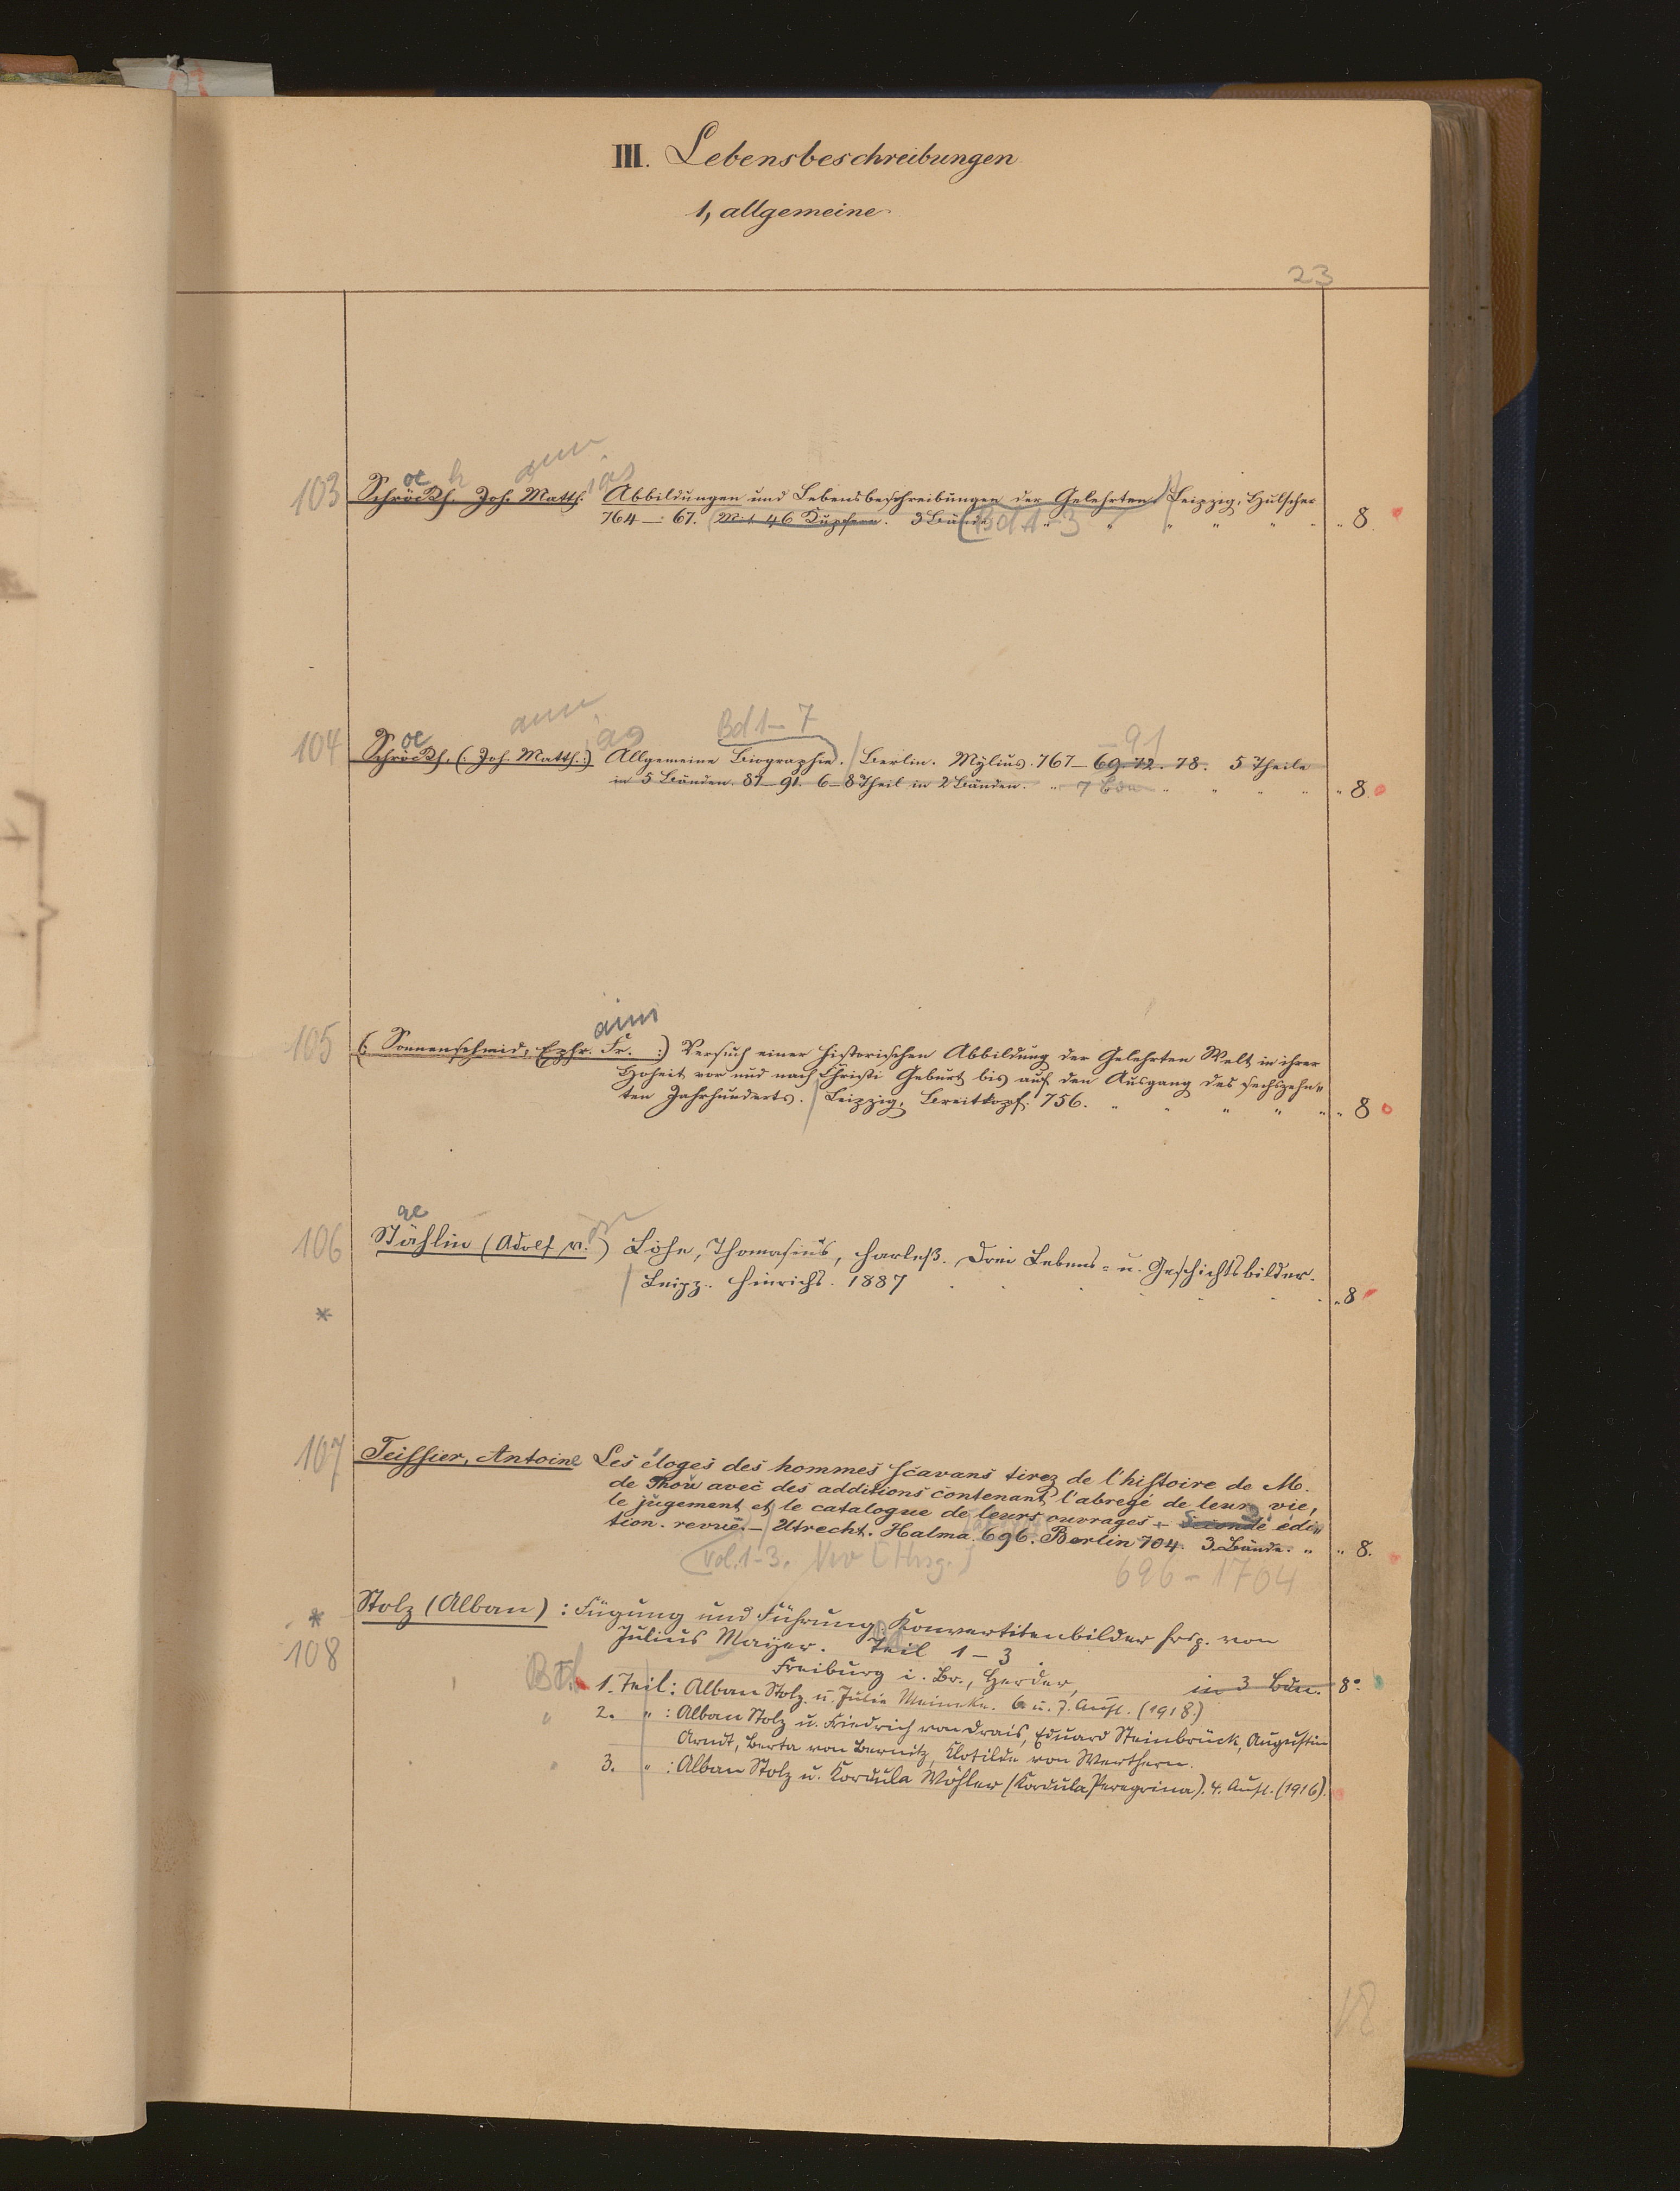 III. Lebensbeschreibungen
1, allgemeine
23
103 Schröckh. Joh. Matth. Abbildungen und Lebensbeschreibungen der Gelehrten. Leipzig. Hulscher
764—67. Mit 46 Kupfern. 3 Bände Bd 1-3 " " " " " 8
Bd 1-7
91
104 Schröckh, (: Joh. Matth. :) Allgemeine Biographie. Berlin. Mylius. 767—69. 72. 78. 5 Theile
in 5 Bänden. 87—91. 6—8 Theil in 2 Bänden. " 7 Bde " " " " " 8.
105 (: Sonnenschmid, Ephr. Fr. :) Versuch einer historischen Abbildung der Gelehrten Welt in ihrer
Hoheit vor und nach Christi Geburt bis auf den Ausgang des sechszehn"
ten Jahrhunderts. Leipzig, Breitkopf. 756. " " " " " " 8
ae
106 Stählin (Adolf v.) Löhe, Thomasius, Harleß. Drei Lebens- u. Geschichtsbilder.
Leipz. Hinrichs. 1887 " 8
*
107 Teissier, Antoine Les éloges des hommes sçavans tirez de l'histoire de M.
de Thou avec des additions contenant l'abregé de leur vie,
le jugement et le catalogue de leurs ouvrages + Seconde édi"
tion. revuë.— Utrecht. Halma. 696. Berlin 704. 3 Bände. " " 8.
vol. 1-3.
696 - 1704
* Stolz (Alban) : Fügung und Führung. Konvertitenbilder hrsg. von
108 Julius Mayer. Teil 1-3
Freiburg i. Br., Herder, in 3 Bdn. 8°
1. Teil: Alban Stolz u. Julie Meineke. 6. u. 7. Aufl. (1918.)
2. " : Alban Stolz u. Friedrich von Drais, Eduard Steinbrück, Augustin
Arndt, Berta von Bernitz, Klotilde von Werthern.
3. " : Alban Stolz u. Kordula Wöhler (Kordula Peregrina). 4. Aufl. (1916).